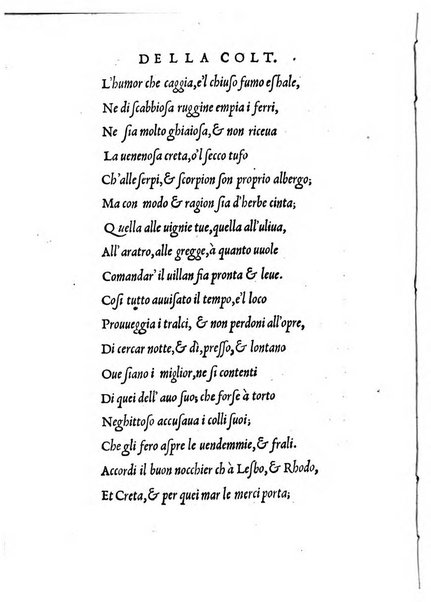 DELLA COLT.
L'humor che caggia, e'l chiuso fumo eshale,
Ne di scabbiosa ruggine empia i ferri,
Ne sia molto ghiaiosa, & non riceua
La uenenosa creta, o'l secco tufo
Ch'alle serpi, & scorpion son proprio albergo;
Ma con modo & ragion sia d'herbe cinta;
Quella alle uignie tue, quella all'uliua,
All'aratro, alle gregge, à quanto uuole
Comandar' il uillan fia pronta & leue.
Cosi tutto auuisato il tempo, e'l loco
Prouueggia i tralci, & non perdoni all'opre,
Di cercar notte, & dì, presso, & lontano
Oue siano i miglior, ne si contenti
Di quei dell'auo suo; che forse à torto
Neghittoso accusaua i colli suoi;
Che gli fero aspre le uendemmie, & frali.
Accordi il buon nocchier ch à Lesbo, & Rhodo,
Et Creta, & per quei mar le merci porta;